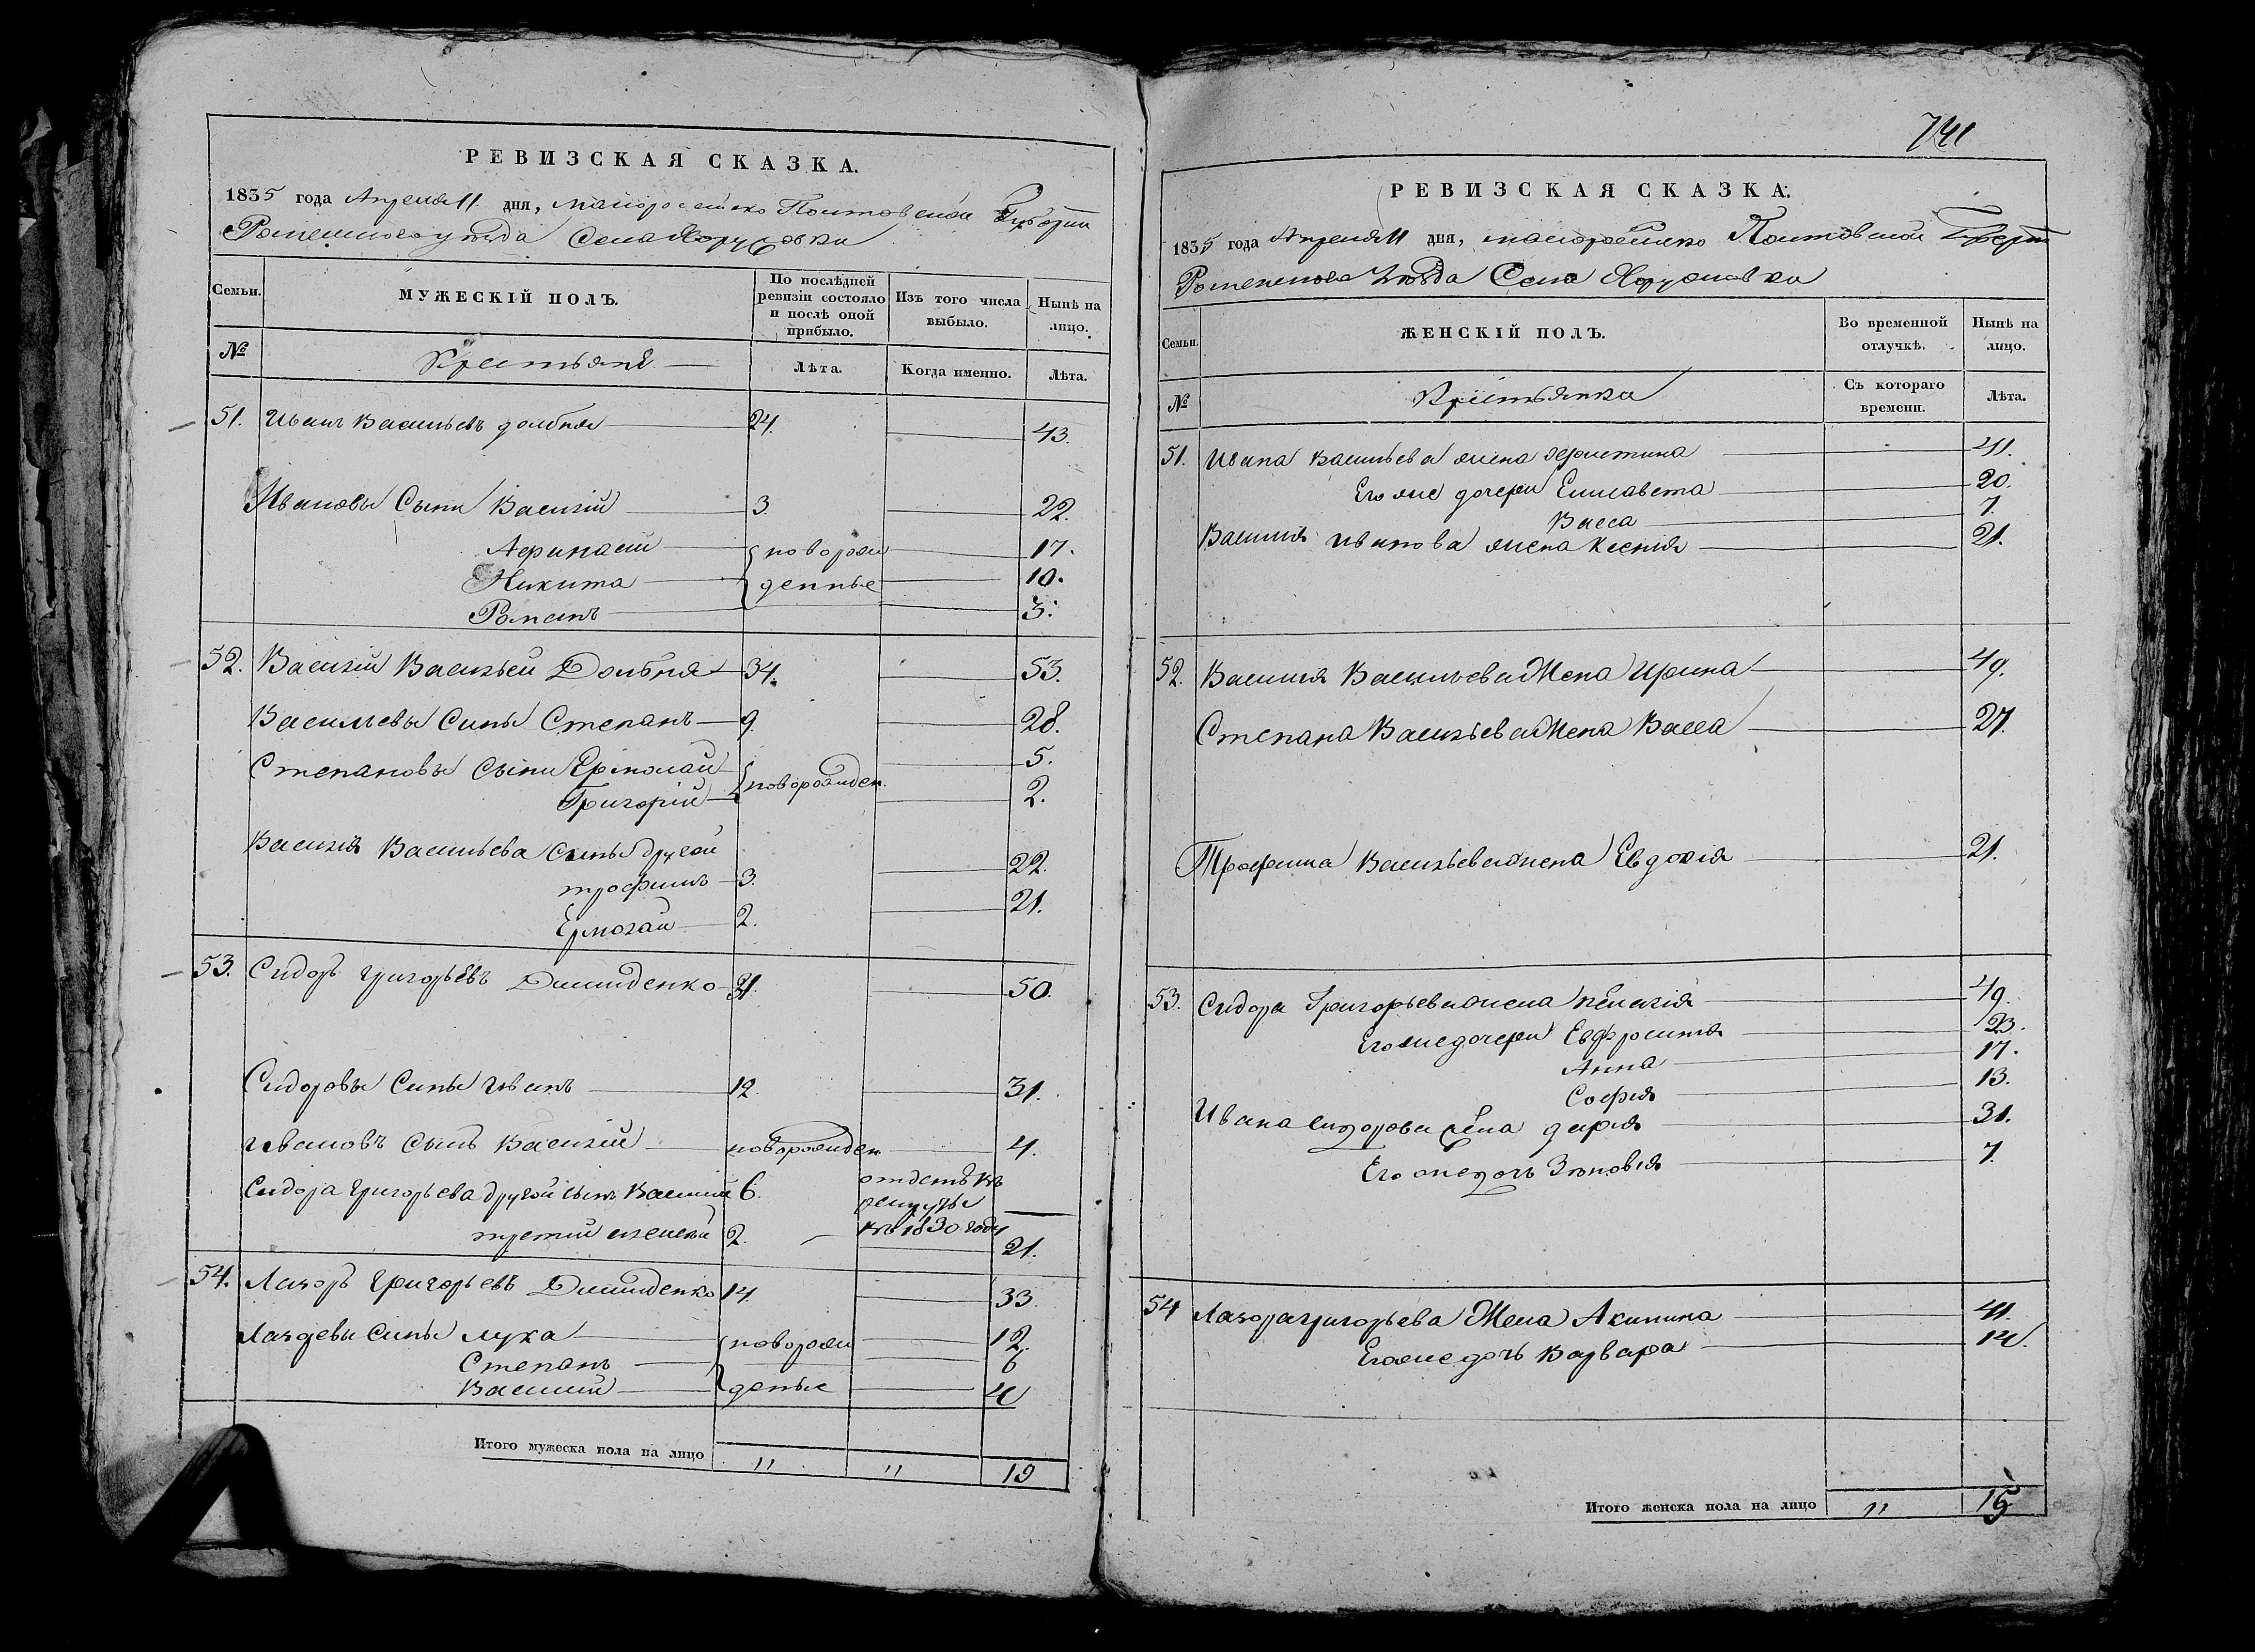 РЕВИЗСКАЯ СКАЗКА.
1835 года Апреля 11 дня, малоросейско Полтовской Губернии
Роменского уезда Села Хоружовки
Семьи.
МУЖЕСКІЙ ПОЛЪ.
По послѣдней ревизіи состояло и послѣ оной прибыло.
Изъ того числа выбыло.
Нынѣ на лицо.
№
Крестьяне
Лѣта.
Когда именно.
Лѣта.
51. Иванъ Васильевъ долбня 24. 43.
Ивановы Сыны Василій 3. 22.
Афанасий новорож 17.
Никита денные 10.
Романъ 3.
52. Василій Васильев Долбня 34. 53.
Васильевы Сины Степанъ 9. 28.
Степановы Сыны Ермолай 5.
новорожден.
Григорій 2.
Василія Васильева сынъ другой
трофимъ 3. 22.
Ермолай 2. 21.
53. Сидоръ Григорьевъ Димиденко 31. 50.
Сидоровы Сины Иванъ 12. 31.
Ивановъ Сынъ Василій новорожден 4.
Сидора Григорьева другой сынъ Василий 6. отдетъ въ рекруты
въ 1830 году
третий алексей 2. 21.
54. Лазоръ Григорьевъ Димиденко 14. 33.
Лазоревы Сины лука новорож 12.
Степанъ 6
Василий денные 4
Итого мужеска пола на лицо " " 19
741
РЕВИЗСКАЯ СКАЗКА.
1835 года Апреля 11 дня, малоросейско Полтовской Губерни
Роменского Уезда Села Хоружовки
Семьи.
ЖЕНСКІЙ ПОЛЪ.
Во временной отлучкѣ.
Нынѣ на лицо.
№
Крестьянки
Съ котораго времени.
Лѣта.
51. Ивана Васильева жена Христина 41.
Его же дочери Елисавета 20.
Васса 7.
Василия Иванова жена Ксения 21.
52. Василия Васильева Жена Ирина 49.
Степана Васильева Жена Васса 27.
Трофима Васильева жена Евдокія 21.
53. Сидора Григорьева жена пелагія 49.
Его же дочери Евфросиния 23.
Анна 17.
София 13.
Ивана сидорова жена дария 31.
Его же дочь Зѣновія 7.
54 Лазора григорьева Жена Акилина 41.
Его же дочь Варвара 14.
Итого женска пола на лицо " 15